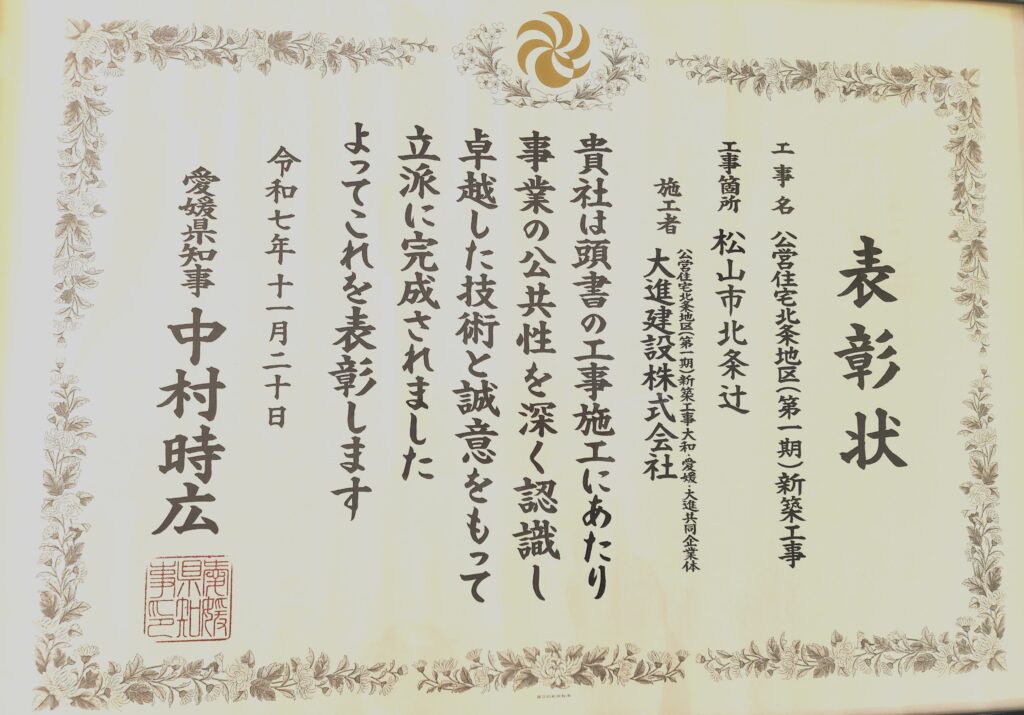 表彰状
工事名 公営住宅北条地区(第一期)新築工事
工事箇所 松山市北条辻
公営住宅北条地区(第一期)新築工事 大和・愛媛・大進共同企業体
施工者 大進建設株式会社
貴社は頭書の工事施工にあたり
事業の公共性を深く認識し
卓越した技術と誠意をもって
立派に完成されました
よってこれを表彰します
令和七年十一月二十日
愛媛県知事 中村時広
愛媛
県知
事印